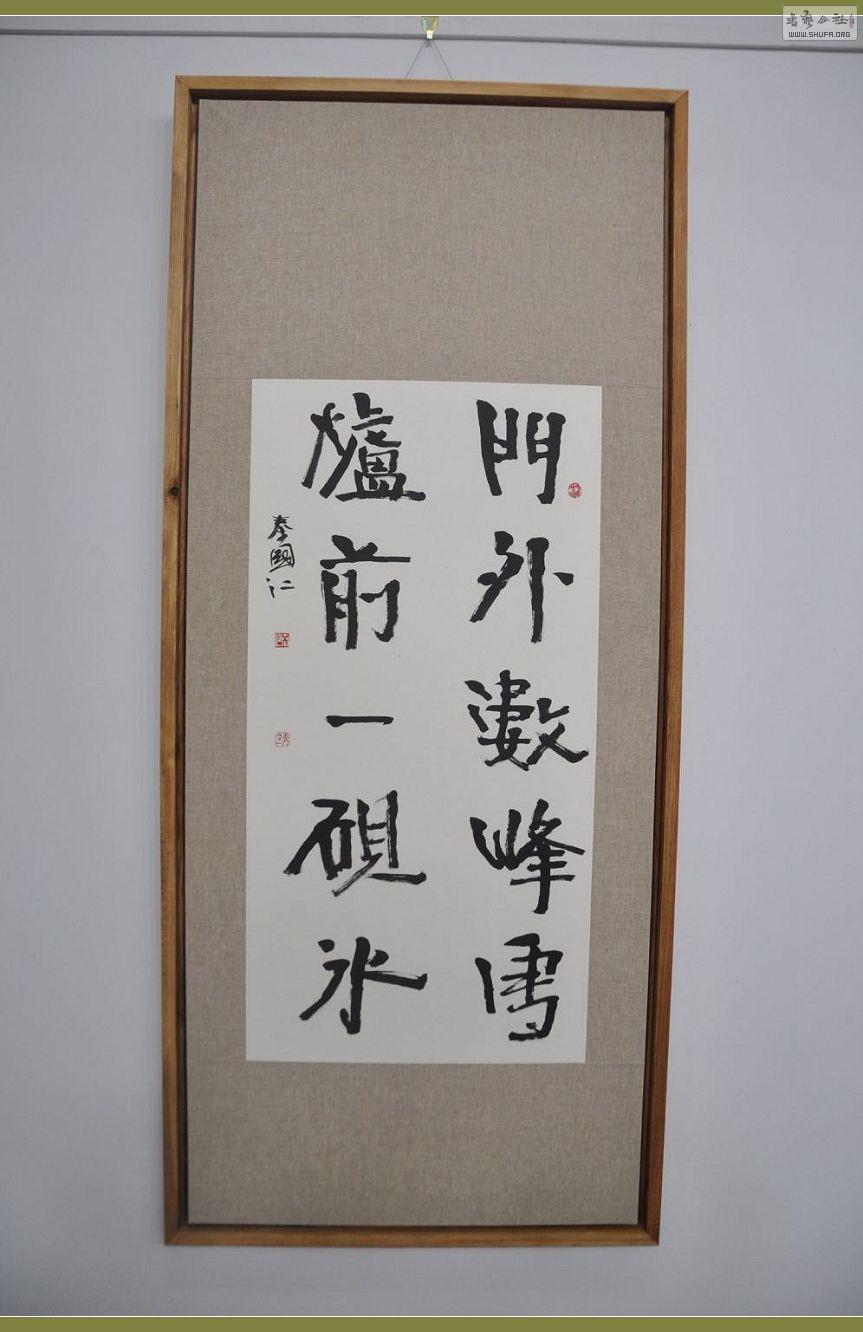 門外數峰雪
爐前一硯冰
秦國仁
書藝公社
WWW.SHUFA.ORG